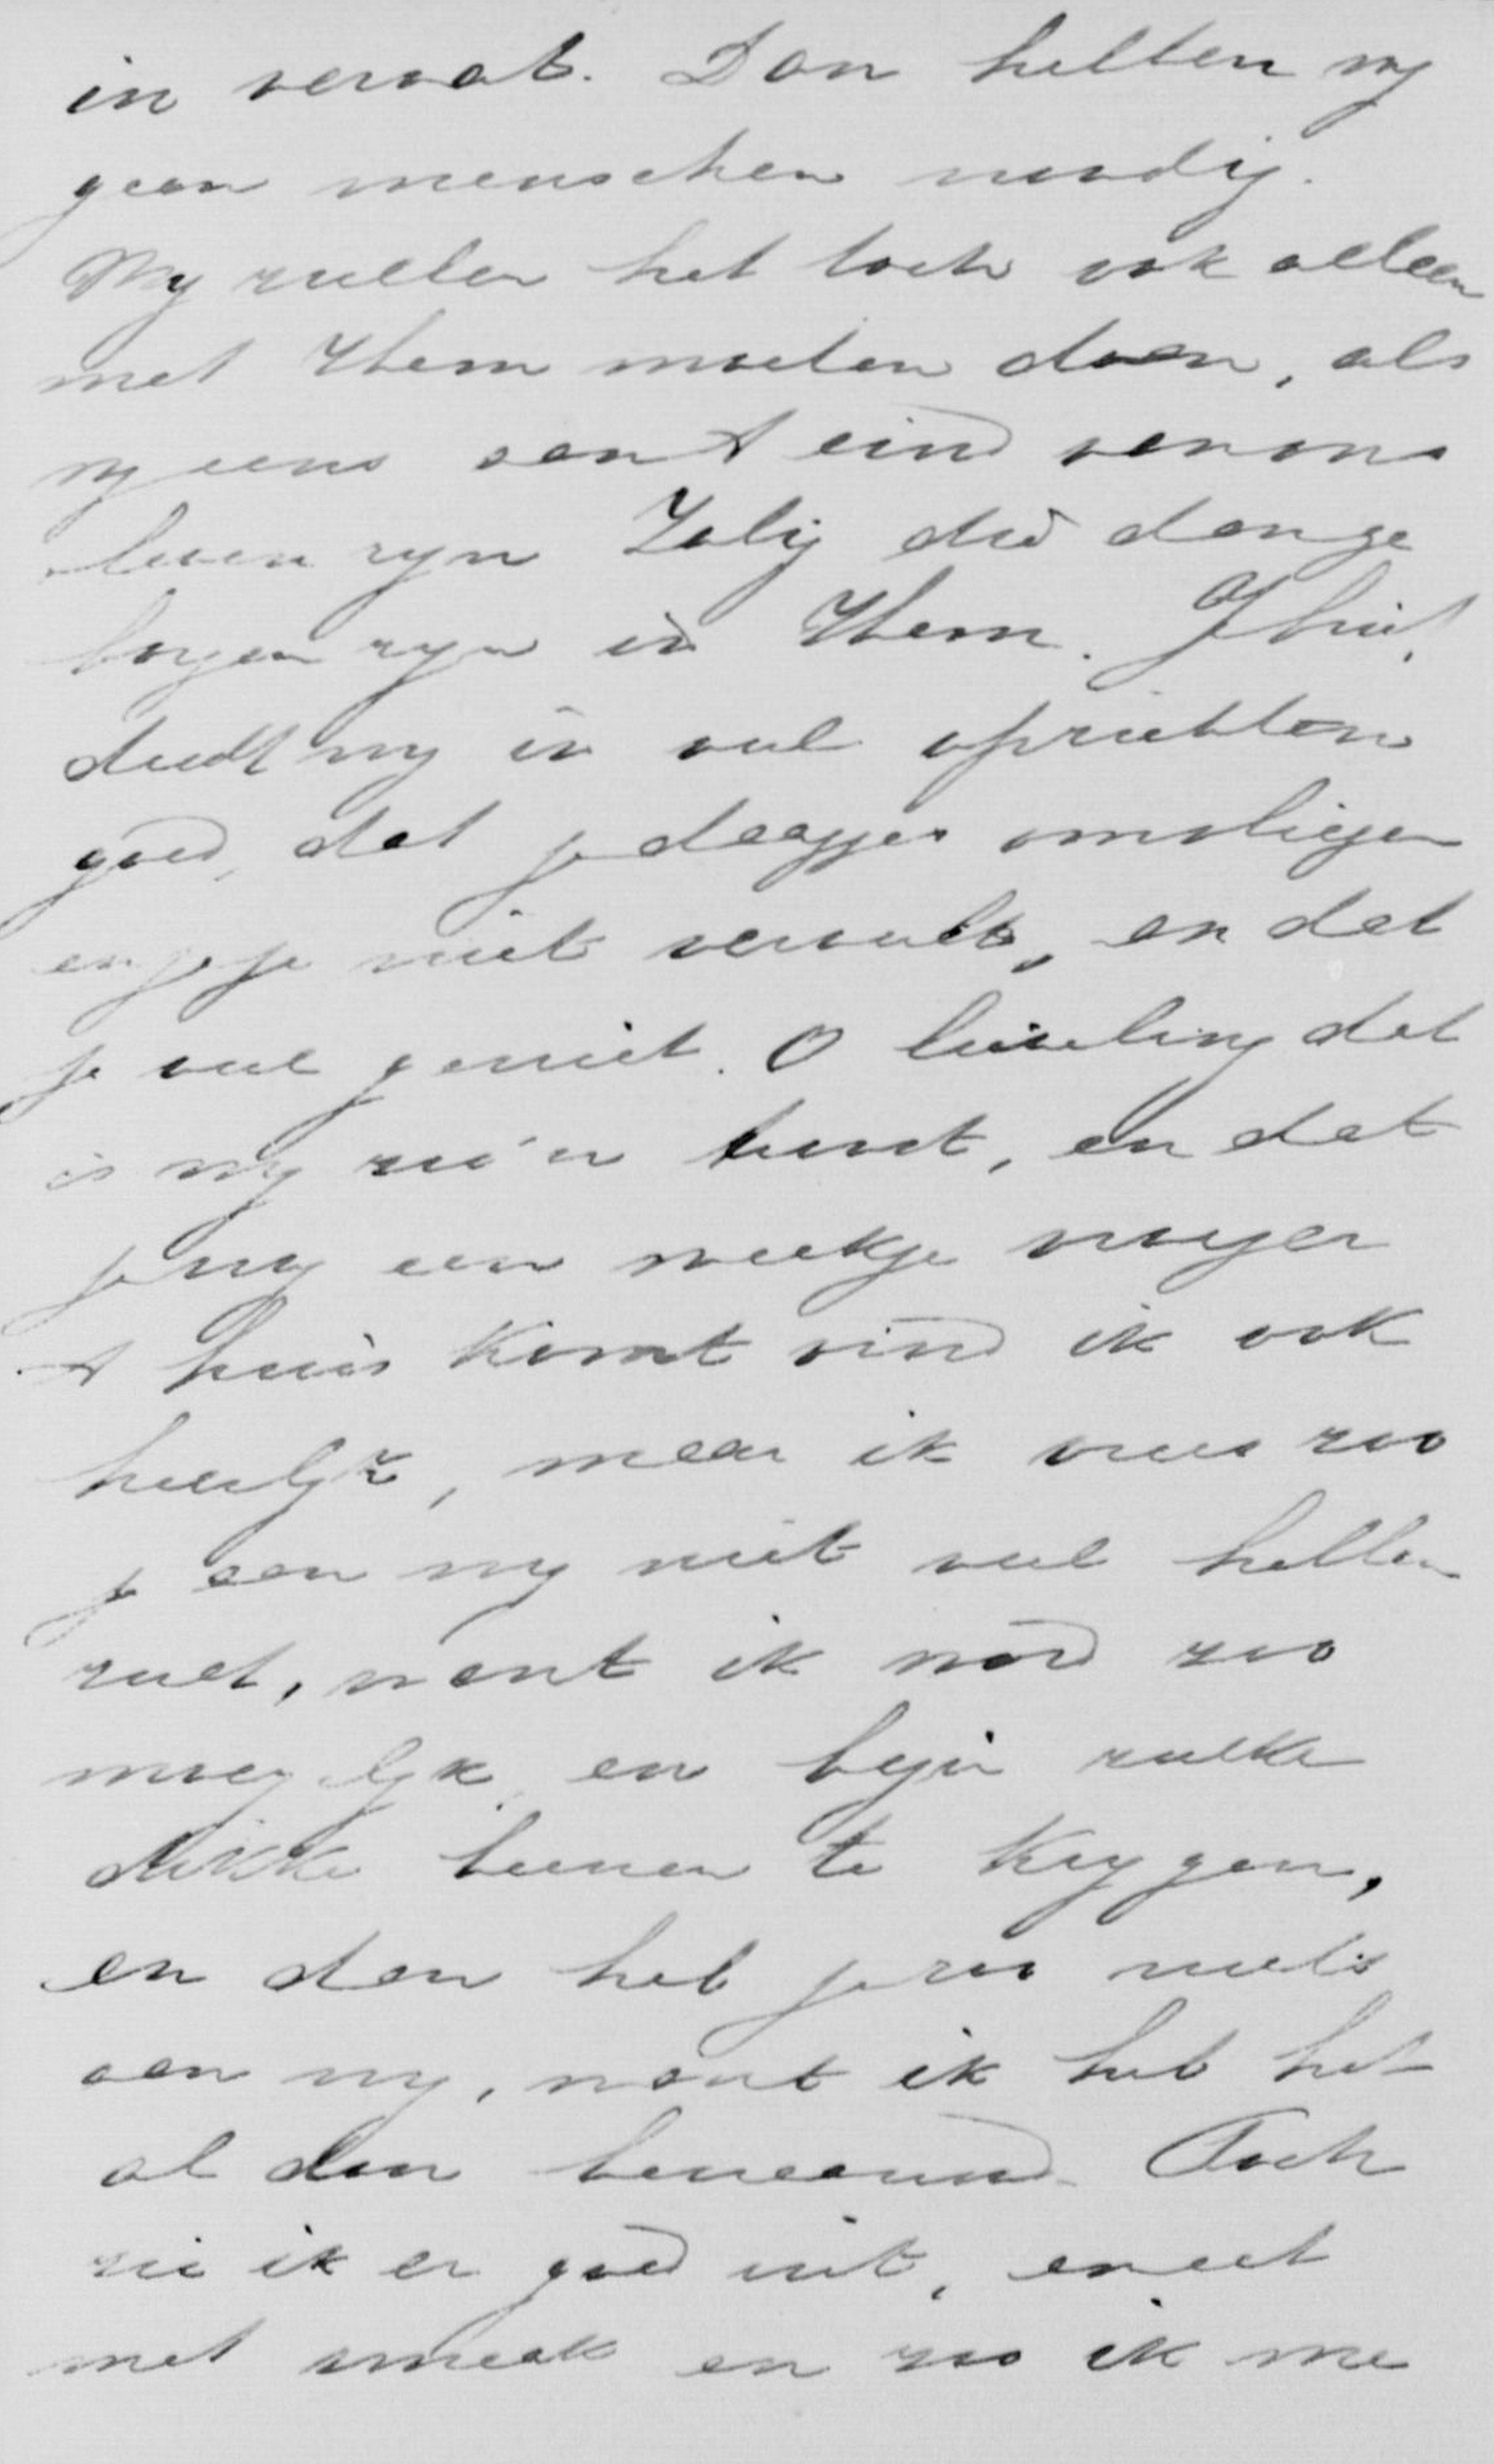 in vervat. Dan hebben wy
geen menschen noodig.
Wy zullen het toch ook alleen
met Hem moeten doen, als
wy eens aan t eind van ons
leven zyn Zalig die dan ge
borgen zyn in Hem.
doedt my in veel opzichten
goed, dat je daagjes omvliegen
en je je niet verveelt, en dat
je veel geniet. O lieveling dat
is my zoo'n troost, en dat
je nog een weekje vroeger
t huis komt vind ik ook
heerlyk, maar ik vrees zoo
je aan my niet veel hebben
zult, want ik word zoo
moeylyk en begin zulke
dikke beenen te krygen,
en dan heb je zoo niets
aan my, want ik heb het
al dan benaauwd. Toch
zie ik er goed uit, en eet
met smaak en zoo ik me